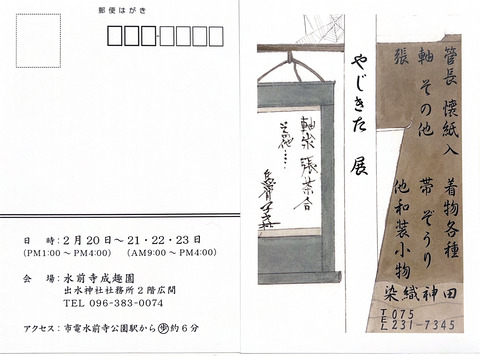 郵便はがき
日 時:2月20日〜21・22・23日
(PM1:00〜PM4:00) (AM9:00〜PM4:00)
会 場:水前寺成趣園
出水神社社務所2階広間
TEL 096-383-0074
アクセス:市電水前寺公園駅から歩約6分
やじきた 展
菅長 懐紙入 着物各種
軸 その他 帯 ぞうり
張 他和装小物
染織神田
TEL 075
231-7345